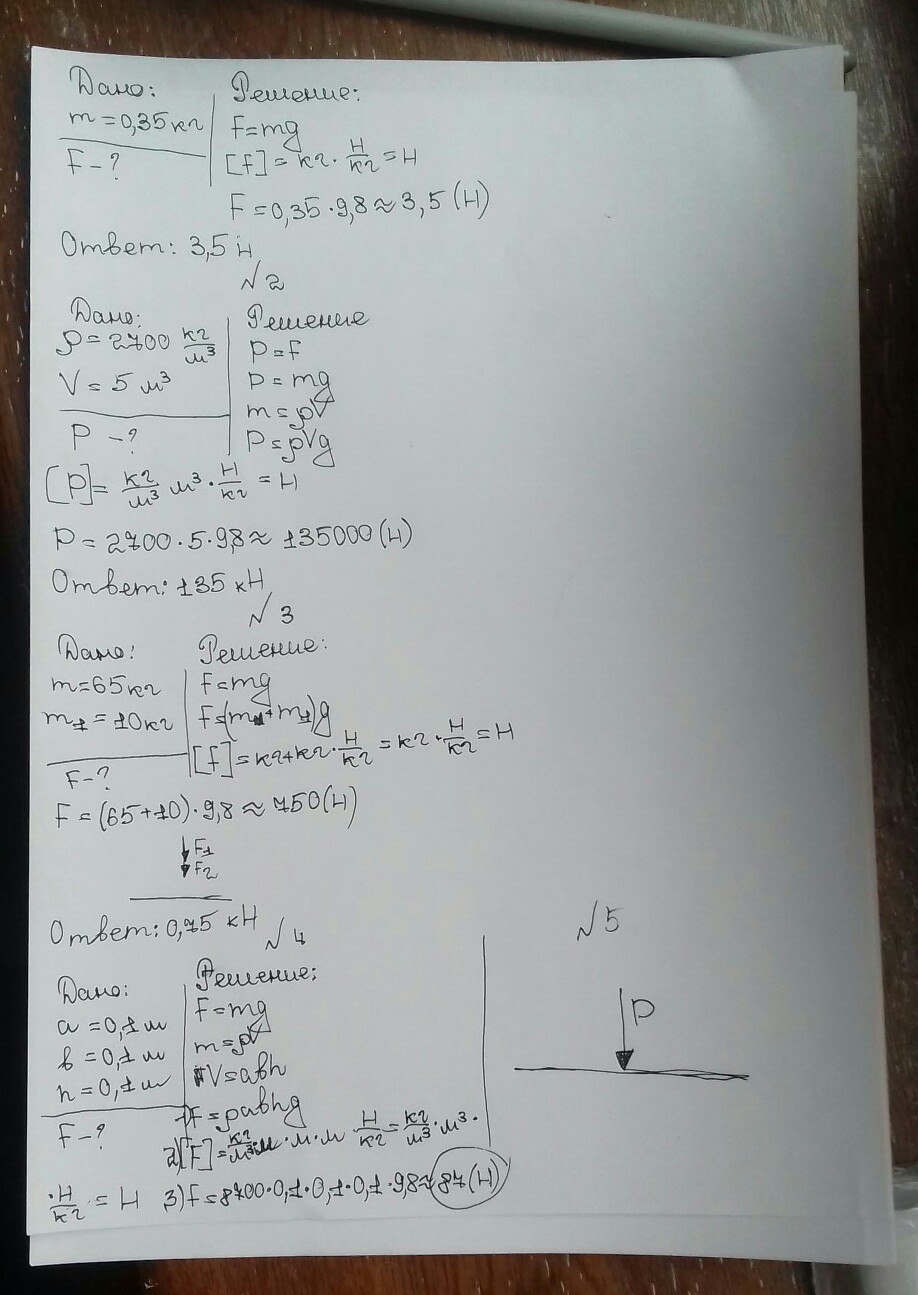 Дано:
m = 0,35 кг
F - ?
Решение:
F = mg
[F] = кг · Н/кг = Н
F = 0,35 · 9,8 ≈ 3,5 (Н)
Ответ: 3,5 Н
√2
Дано:
ρ = 2700 кг/м³
V = 5 м³
P - ?
Решение
P = F
P = mg
m = ρV
P = ρVg
[P] = кг/м³ м³ · Н/кг = Н
P = 2700 · 5 · 9,8 ≈ 135000 (Н)
Ответ: 135 кН
√3
Дано:
m = 65 кг
m₁ = 10 кг
F - ?
Решение:
F = mg
F = (m + m₁)g
[F] = кг + кг · Н/кг = кг · Н/кг = Н
F = (65 + 10) · 9,8 ≈ 750 (Н)
F₁
F₂
Ответ: 0,75 кН
√4
Дано:
a = 0,1 м
b = 0,1 м
h = 0,1 м
F - ?
Решение:
F = mg
m = ρV
V = abh
1) F = ρabhg
2) [F] = кг/м³ · м · м · м · Н/кг = кг/м³ · м³ ·
· Н/кг = Н
3) F = 8700 · 0,1 · 0,1 · 0,1 · 9,8 ≈ 87 (Н)
√5
P